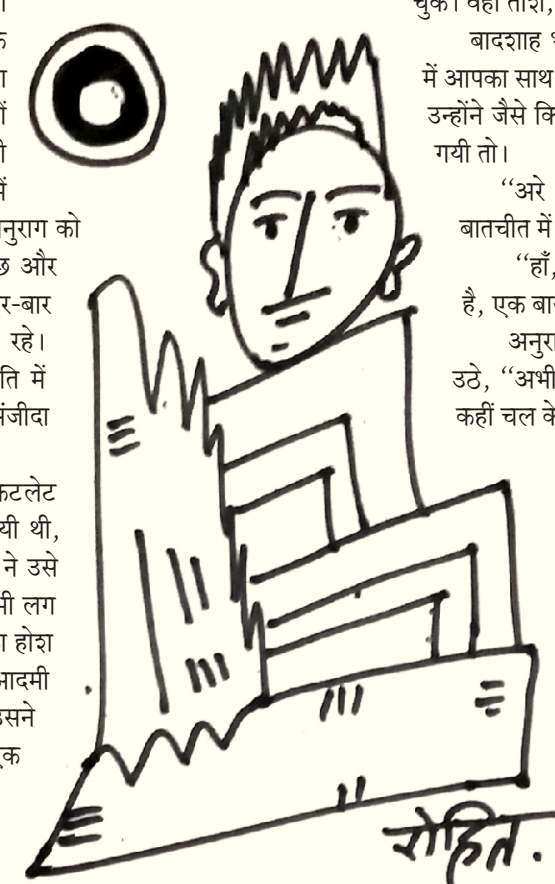 में
नुराग को
छ और
र-बार
रहे।
ति में
ंजीदा
कटलेट
यी थी,
ने उसे
भी लग
ा होश
आदमी
उसने
चुके। वहाँ ताश,
बादशाह
में आपका साथ
उन्होंने जैसे कि
गयी तो।
‘‘अरे
बातचीत में
‘‘हाँ,
है, एक बार
अनुरा
उठे, ‘‘अभी
कहीं चल के
रोहित.